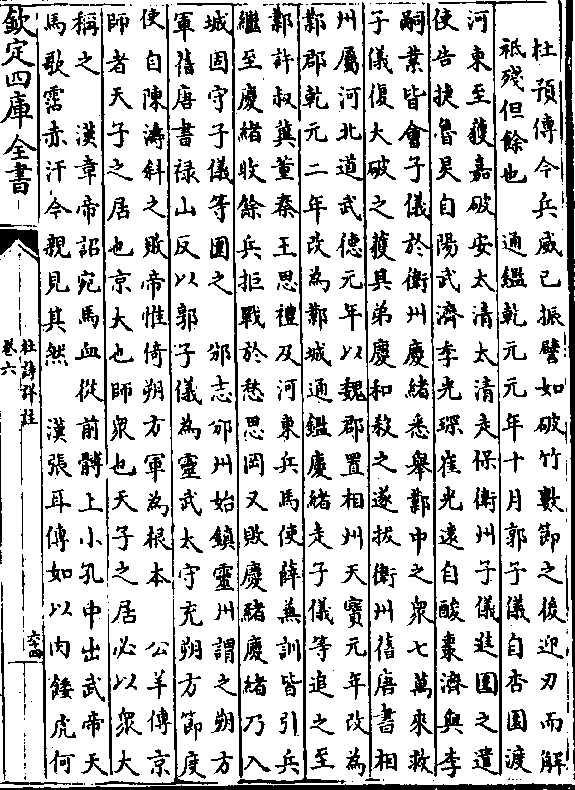 杜預傳今兵威已振譬如破竹數節之後迎刃而解
祗殘但餘也　通鑑乾元元年十月郭子儀自杏園渡
河東至獲嘉破安太清太清走保衛州子儀進圍之遣
使告捷魯炅自陽武濟李光琛崔光遠自酸棗濟與李
嗣業皆會子儀於衛州慶緒悉舉鄴中之衆七萬來救
子儀復大破之獲其弟慶和殺之遂拔衛州舊唐書相
州屬河北道武德元年以魏郡置相州天寶元年改為
鄴郡乾元二年改為鄴城通鑑慶緒走子儀等追之至
鄴許叔冀董秦王思禮及河東兵馬使薛蒹訓皆引兵
繼至慶緒收餘兵拒戰於愁思岡又敗慶緒慶緒乃入
城固守子儀等圍之　邠志邠州始鎮靈州謂之朔方
軍舊唐書禄山反以郭子儀為靈武太守充朔方節度
使自陳濤斜之敗帝惟倚朔方軍為根本　公羊傳京
師者天子之居也京大也師衆也天子之居必以衆大
稱之　漢章帝詔宛馬血從前髆上小孔中出武帝天
馬歌霑赤汗今親見其然　漢張耳傳如以肉餧虎何
欽定四庫全書
杜詩詳註
卷六
六十四